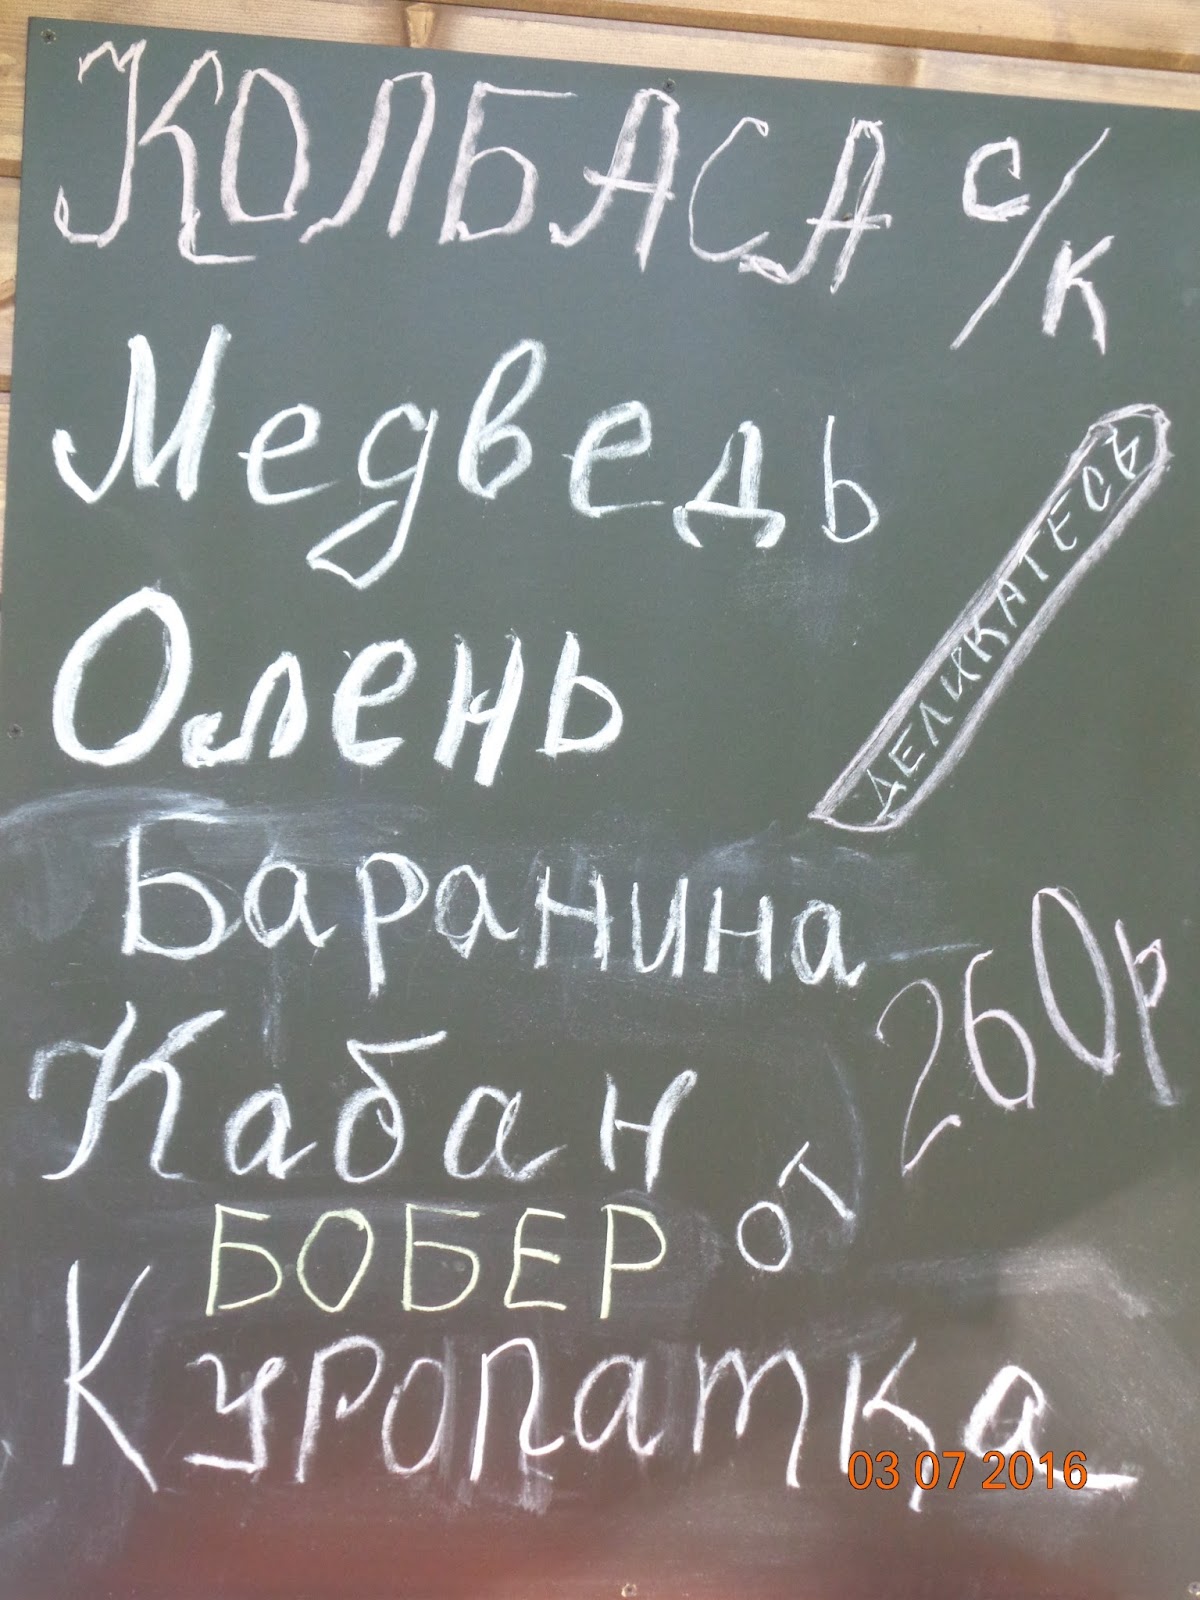 КОЛБАСА с/к
Медведь
ДЕЛИКАТЕСЫ
Олень
Баранина
Кабан
от 260р
БОБЕР
Куропатка
03 07 2016